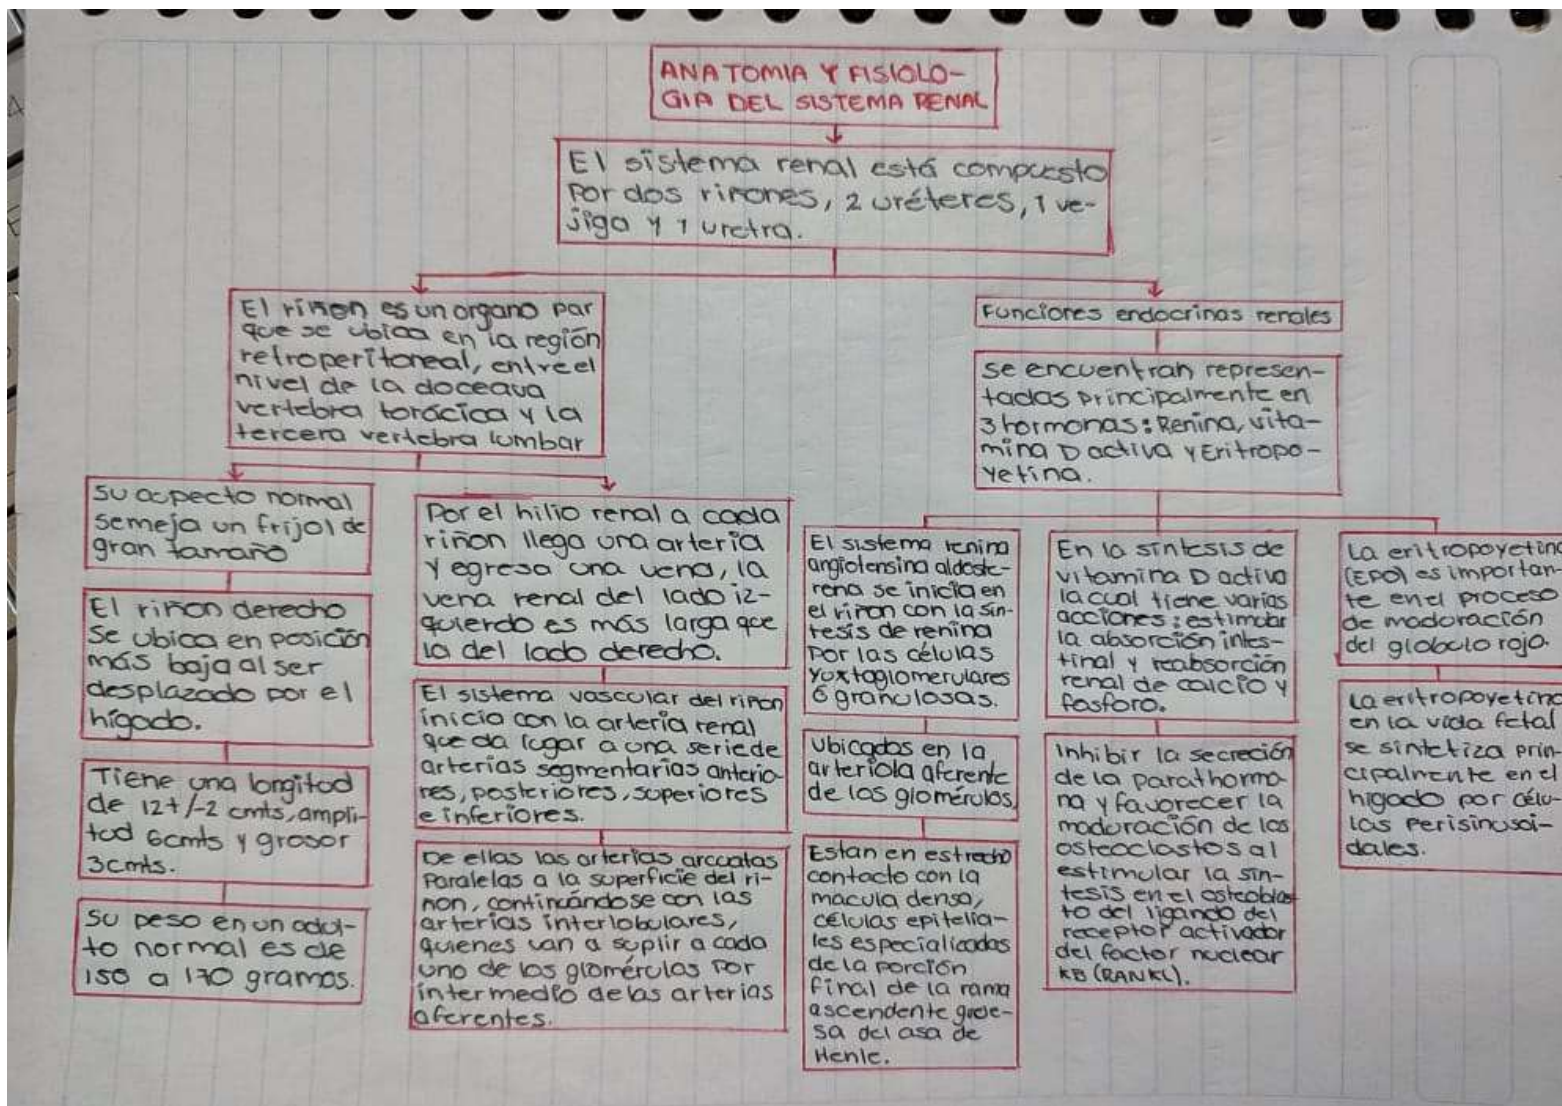 ANATOMIA Y FISIOLO-
GIA DEL SISTEMA RENAL
El sistema renal está compuesto
por dos riñones, 2 uréteres, 1 ve-
jiga y 1 uretra.
El riñon es un organo par
que se ubica en la región
retroperitoneal, entre el
nivel de la doceava
vertebra torácica y la
tercera vertebra lumbar
Su aspecto normal
semeja un frijol de
gran tamaño
El riñon derecho
se ubica en posición
más baja al ser
desplazado por el
hígado.
Tiene una longitud
de 12+/-2 cmts, ampli-
tud 6cmts y grosor
3cmts.
Su peso en un adul-
to normal es de
150 a 170 gramos.
Por el hilio renal a cada
riñon llega una arteria
y egresa una vena, la
vena renal del lado iz-
quierdo es más larga que
la del lado derecho.
El sistema vascular del riñon
inicio con la arteria renal
que da lugar a una serie de
arterias segmentarias anterio-
res, posteriores, superiores
e inferiores.
De ellas las arterias arcuatas
paralelas a la superficie del ri-
ñon, continúandose con las
arterias interlobulares,
quienes van a suplir a cada
uno de los glomérulos por
intermedio de las arterias
aferentes.
Funciones endocrinas renales
se encuentran represen-
tadas principalmente en
3 hormonas: Renina, vita-
mina D activa y Eritropo-
yetina.
El sistema renina
angiotensina aldoste-
rena se inicia en
el riñon con la sin-
tesis de renina
por las células
yuxtaglomerulares
ó granulosas.
Ubicadas en la
arteriola aferente
de los glomérulos,
Estan en estrecho
contacto con la
macula densa,
células epitelia-
les especializadas
de la porción
final de la rama
ascendente grue-
sa del asa de
Henle.
En la sintesis de
vitamina D activa
la cual tiene varias
acciones: estimular
la absorción intes-
tinal y reabsorción
renal de calcio y
fosforo.
Inhibir la secreción
de la parathormo
na y favorecer la
maduración de los
osteoclastos al
estimular la sín-
tesis en el osteoblas-
to del ligando del
receptor activador
del factor nuclear
KB (RANKL).
La eritropoyetina
(EPO) es importan-
te en el proceso
de maduración
del globulo rojo.
La eritropoyetina
en la vida fetal
se sintetiza prin-
cipalmente en el
higado por célu-
las perisinusoi-
dales.